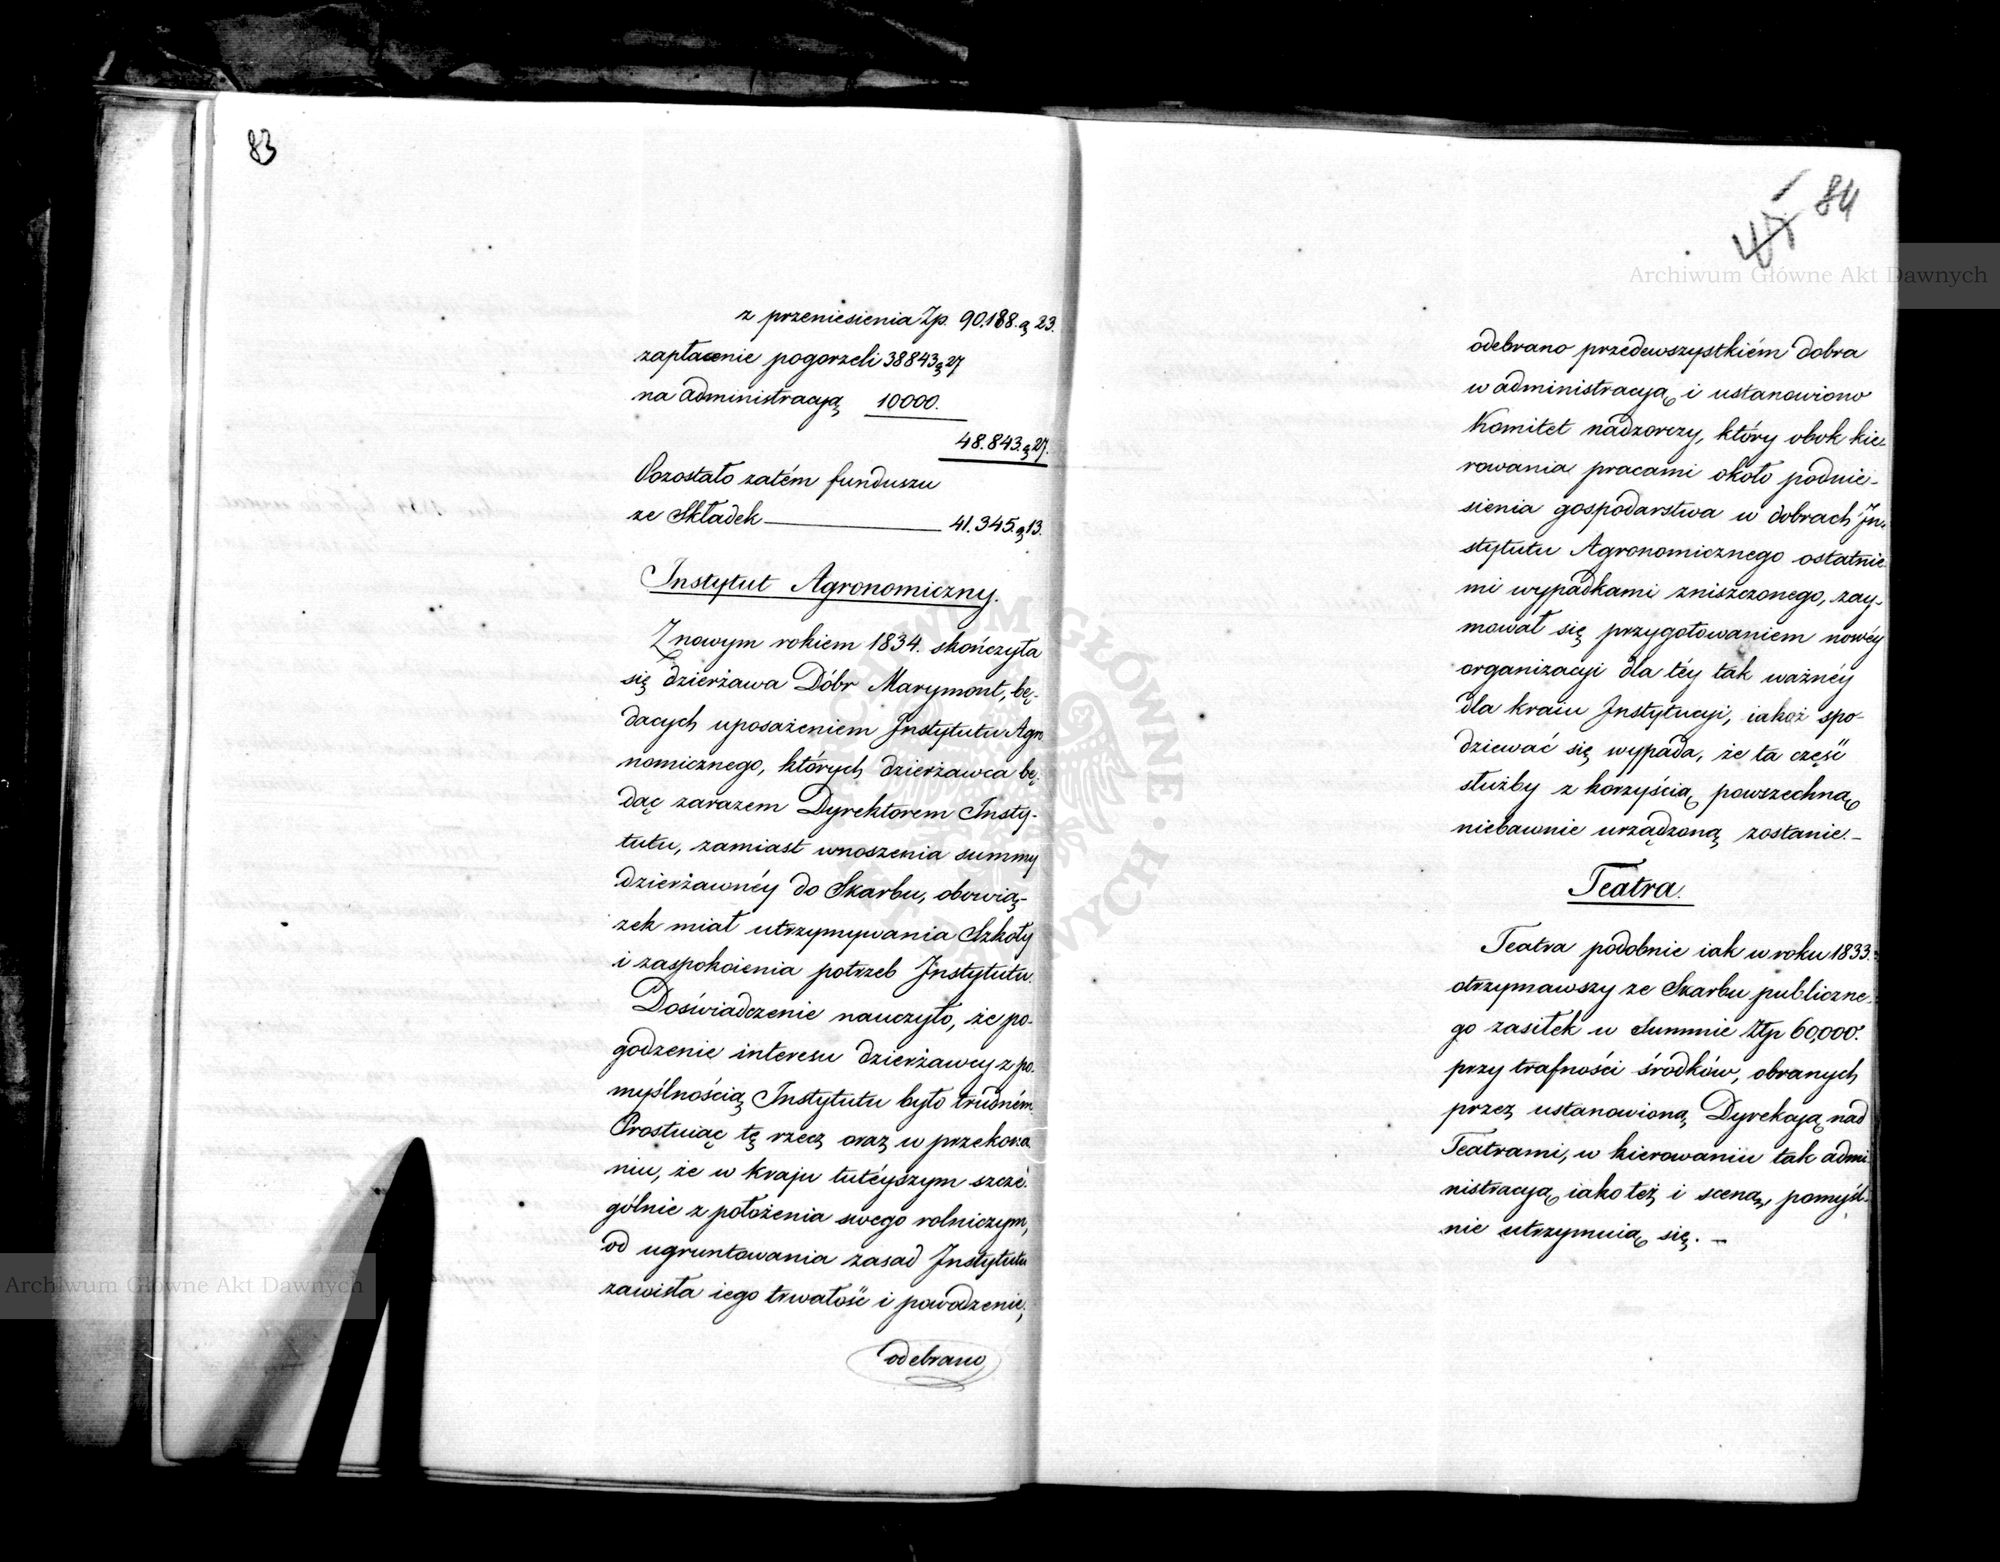 83
z przeniesienia Zp. 90.188. g 23.
zapłacenie pogorzeli 38843 g 27
na administracyą 10000.
48.843. g 27.
Pozostało zatém funduszu
ze Składek 41.345. g 13.
Instytut Agronomiczny.
Z nowym rokiem 1834. skończyła
się dzierżawa Dóbr Marymont, bę-
dacych uposażeniem Instytutu Agro
nomicznego, których dzierżawca bę-
dąc zarazem Dyrektorem Insty-
tutu, zamiast wnoszenia summy
dzierżawnéy do Skarbu, obowią-
zek miał utrzymywania Szkoły
i zaspokoienia potrzeb Instytutu.
Doświadczenie nauczyło, że po-
godzenie interesu dzierżawcy z po-
myślnością Instytutu było trudném
Prostuiąc tę rzecz oraz w przekona
niu, że w kraju tutéyszym szcze-
gólnie z położenia swego rolniczym,
od ugruntowania zasad Instytutu
zawisła iego trwałość i powodzenie,
odebrano
84
47
odebrano przedewszystkiém dobra
w administracyą i ustanowiono
Komitet nadzorczy, który obok kie-
rowania pracami około podnie-
sienia gospodarstwa w dobrach In-
stytutu Agronomicznego ostatnie
mi wypadkami zniszczonego, zay-
mował się przygotowaniem nowéy
organizacyi dla téy tak ważnéy
dla kraiu Instytucyi, iakoż spo-
dziewać się wypada, że ta część
służby z korzyścią powszechną
niebawnie urządzoną zostanie.-
Teatra.
Teatra podobnie iak w roku 1833.
otrzymawszy ze Skarbu publiczne-
go zasiłek w Summie Złp 60,000.
przy trafności środków, obranych
przez ustanowioną Dyrekcyą nad
Teatrami, w kierowaniu tak admi
nistracyą iako też i sceną, pomyśl-
nie utrzymuią się. -
Archiwum Główne Akt Dawnych
Archiwum Główne Akt Dawnych